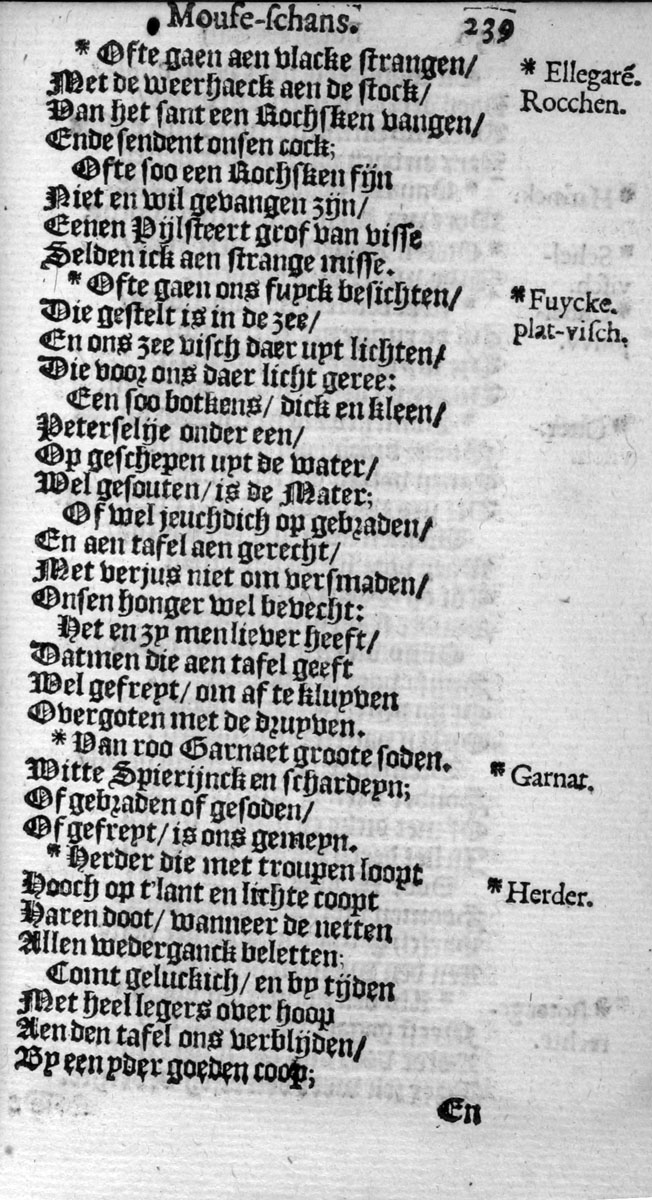 Mouse-schans. 239
* Ofte gaen aen vlacke strangen/
Met de weerhaeck aen de stock/
Van het sant een Rochsken vangen/
Ende sendent onsen cock;
Ofte soo een Rochsken fijn
Niet en wil gevangen zijn/
Eenen Pijlsteert grof van visse
Selden ick aen strange misse.
* Ofte gaen ons fuyck besichten/
Die gestelt is in de zee/
En ons zee visch daer uyt lichten/
Die voor ons daer licht geree:
Een soo botkens/ dick en kleen/
Peterselije onder een/
Op geschepen uyt de water/
Wel gesouten/ is de Mater;
Of wel jeuchdich op gebraden/
En aen tafel aen gerecht/
Met verjus niet om versmaden/
Onsen honger wel bevecht:
Het en zy men liever heeft/
Datmen die aen tafel geeft
Wel gefreyt/ om af te kluyven
Overgoten met de druyven.
* Van roo Garnaet groote soden.
Witte Spierijnck en schardeyn;
Of gebraden of gesoden/
Of gefreyt/ is ons gemeyn.
* Herder die met troupen loopt
Hooch op t'lant en lichte coopt
Haren doot/ wanneer de netten
Allen wederganck beletten;
Comt geluckich/ en by tijden
Met heel legers over hoop
Aen den tafel ons verblijden/
By een yder goeden coop;
En
* Ellegarē.
Rocchen.
* Fuycke.
plat-visch.
* Garnat.
* Herder.